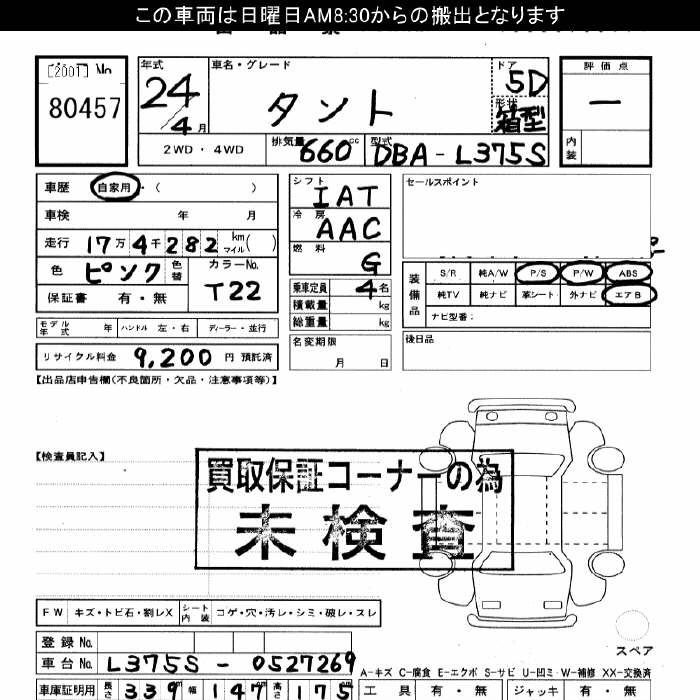 この車両は日曜日AM8:30からの搬出となります
[2001] No
80457
年式 車名・グレード ドア 評価点
24 タント 5D ー
4月 形状 箱型
2WD・4WD 排気量 660cc 型式 DBA-L375S 内装
車歴 自家用・( )
シフト IAT
セールスポイント
車検 年 月
冷房 AAC
走行 17万4千282 km マイル( )
燃料 G
色 ピンク 色替 カラーNo. T22
保証書 有・無
乗車定員 4名
積載量 kg
総重量 kg
装備品 S/R 純A/W P/S P/W ABS
純TV 純ナビ 革シート 外ナビ エアB
ナビ型番:
モデル年式 年 ハンドル 左・右 ディーラー・並行
名変期限
月 日
後日品
リサイクル料金 9,200 円 預託済
【出品店申告欄(不良箇所・欠品・注意事項等)】
【検査員記入】
買取保証コーナーの為
未検査
FW キズ・トビ石・割レX シート内装 コゲ・穴・汚レ・シミ・破レ・スレ
登録No.
スペア
車台No. L375S-0527269
A-キズ C-腐食 E-エクボ S-サビ U-凹ミ W-補修 XX-交換済
車庫証明用 長さ 339 幅 147 高さ 175
工具 有・無 ジャッキ 有・無